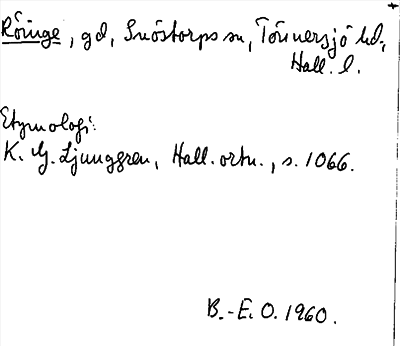 Röinge, gd, Snöstorps sn, Tönnersjö hd,
Hall. l.
Etymologi:
K. G. Ljunggren, Hall. ortn., s. 1066.
B.-E. O. 1960.